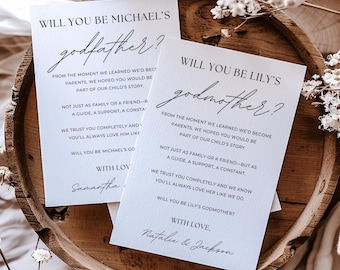 WILL YOU BE MICHAEL'S
godfather?
FROM THE MOMENT WE LEARNED WE'D BECOME
PARENTS, WE HOPED YOU WOULD BE
PART OF OUR CHILD'S STORY.
NOT JUST AS FAMILY OR A FRIEND—BUT AS
A GUIDE, A SUPPORT, A CONSTANT
WE TRUST YOU COMPLETELY AND
YOU'LL ALWAYS LOVE HIM LIKE
WILL YOU BE MICHAEL'S
WITH LO
Samantha
WILL YOU BE LILY'S
godmother?
FROM THE MOMENT WE LEARNED WE'D BECOME
PARENTS, WE HOPED YOU WOULD BE
PART OF OUR CHILD'S STORY.
NOT JUST AS FAMILY OR A FRIEND—BUT AS
A GUIDE, A SUPPORT, A CONSTANT.
WE TRUST YOU COMPLETELY AND WE KNOW
YOU'LL ALWAYS LOVE HER LIKE WE DO
WILL YOU BE LILY'S GODMOTHER?
WITH LOVE,
Natalie & Jackson